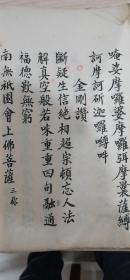 唵娑摩囉娑摩囉弭摩曩薩縛
訶摩訶斫迦囉嚩吽
金剛讚
斷疑生信絕相超宗頓忘人法
解真空般若味重重四句融通
福德歎無窮
南無祇園會上佛菩薩三称